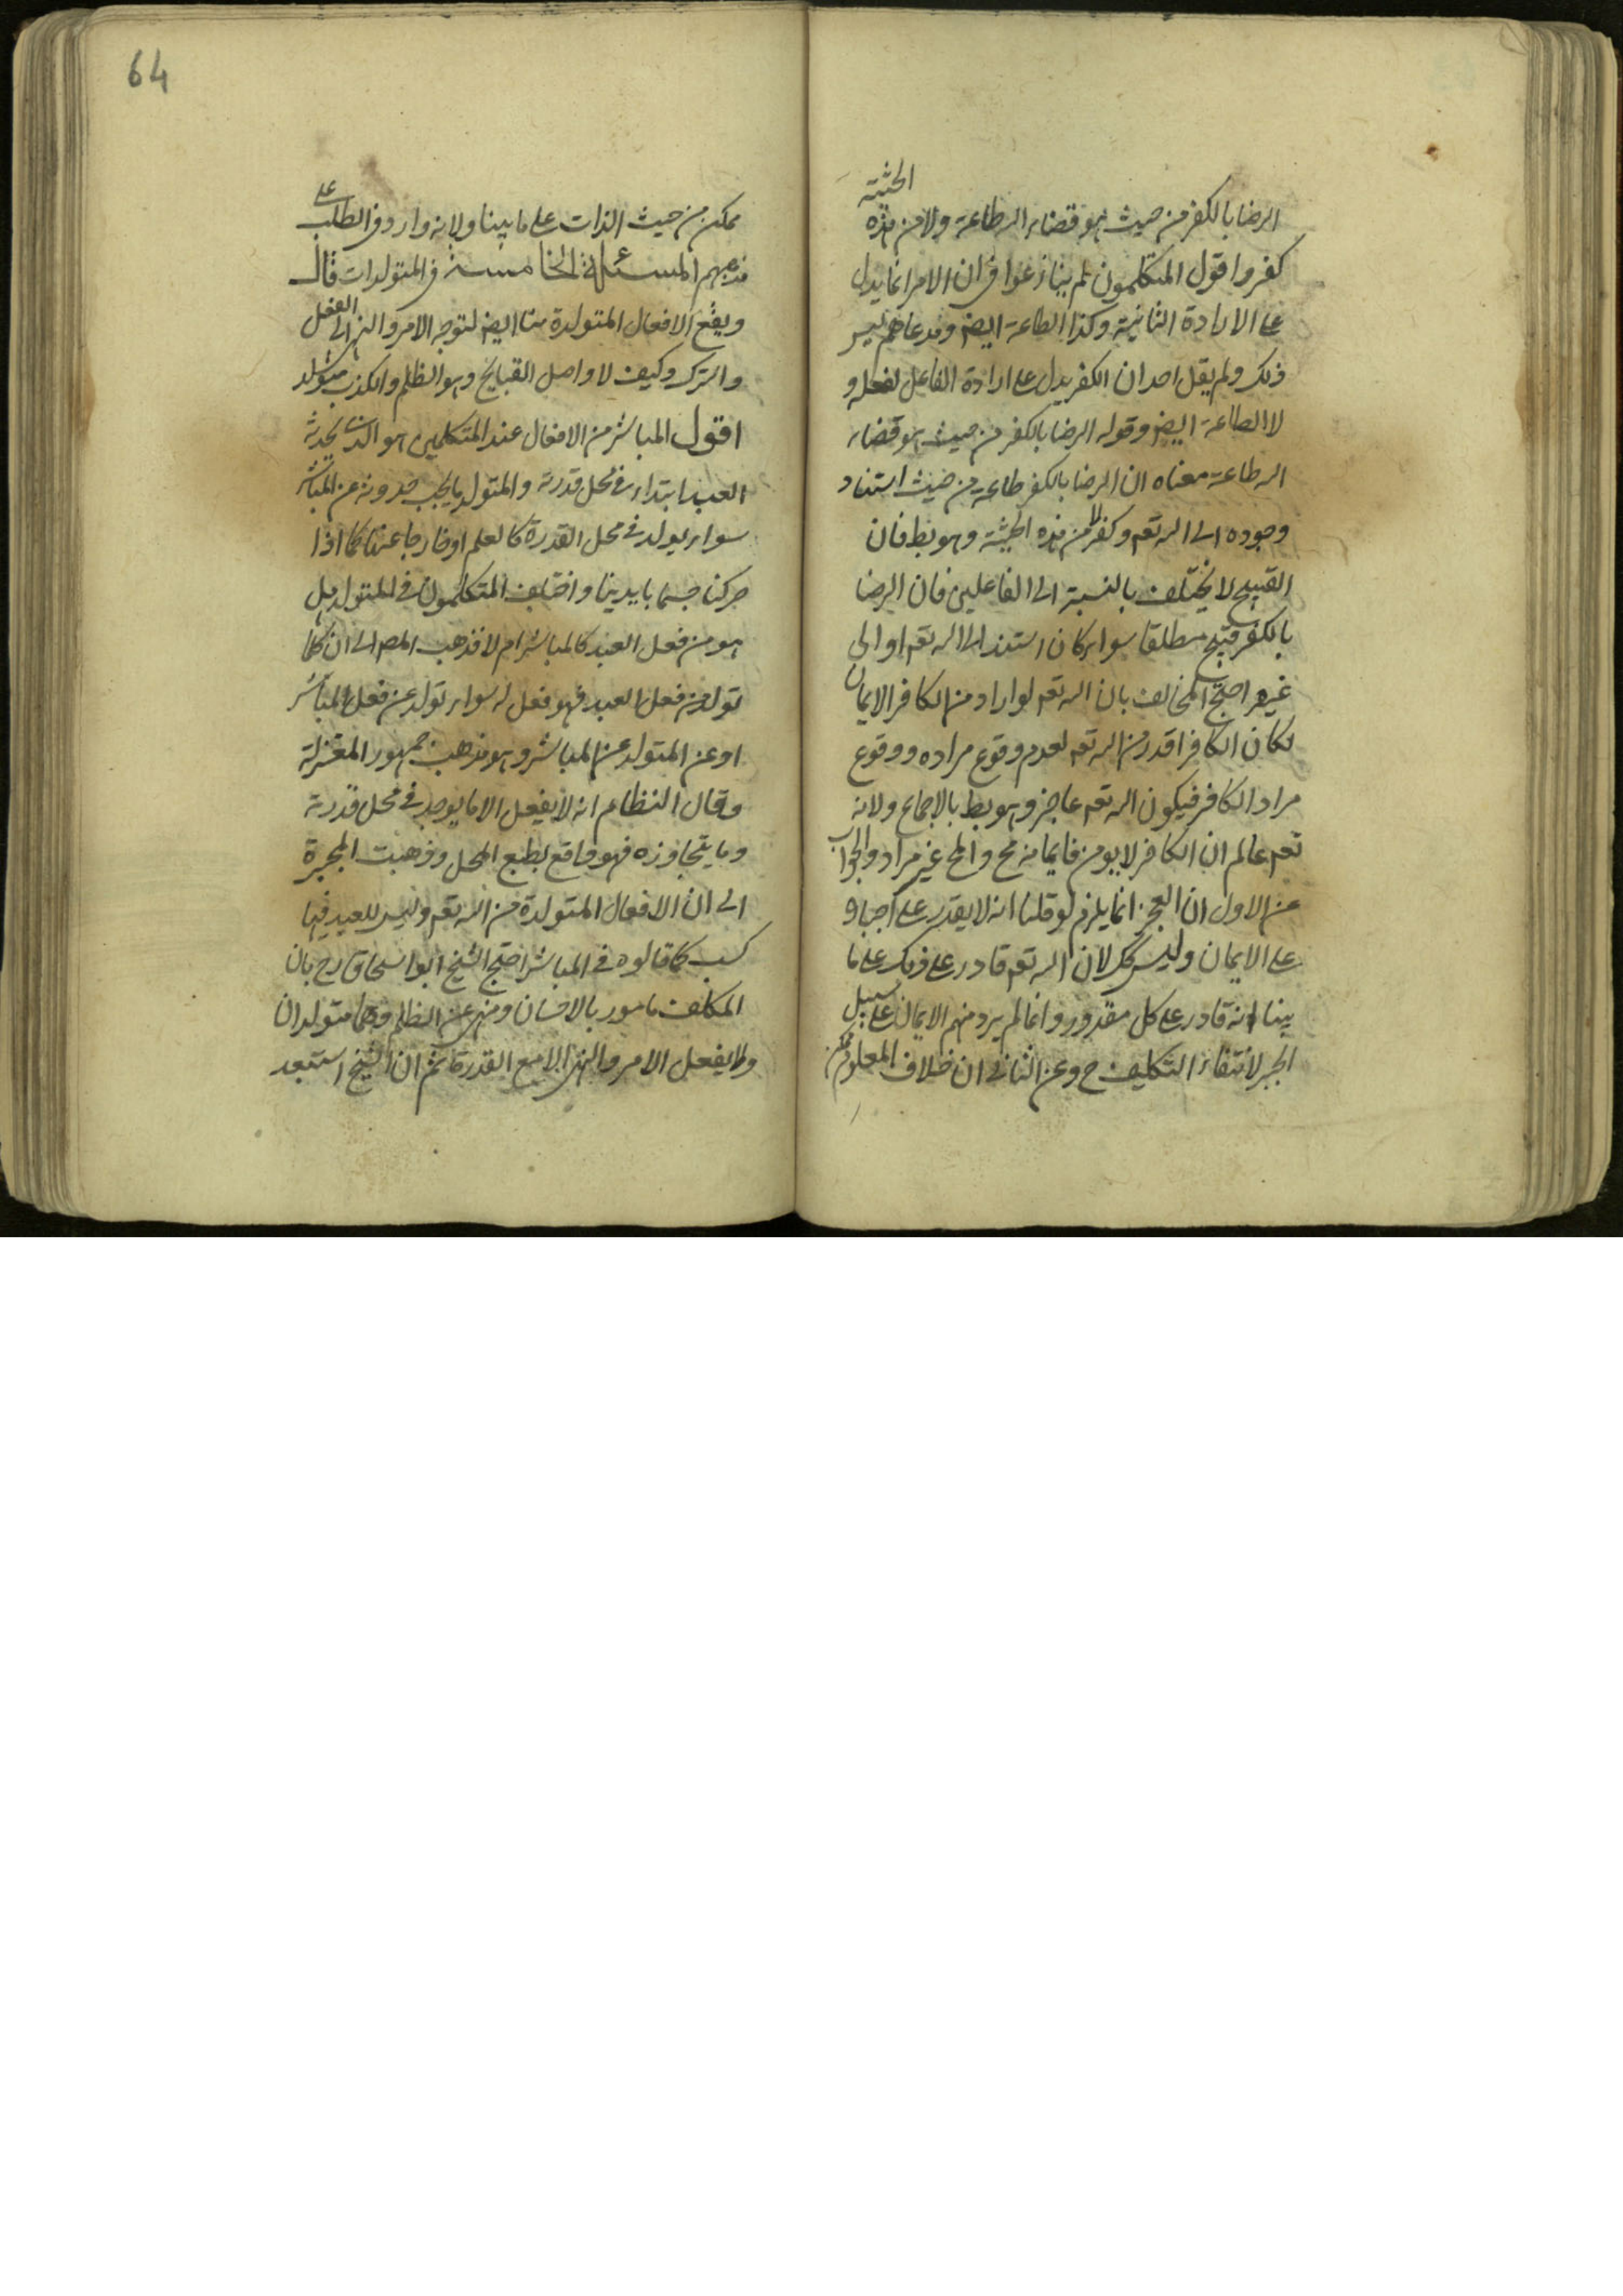 الحيثية
الرضا بالكفر من حيث هو قضاء الله طاعة ولا من هذه
كفر واقول المتكلمون لم ينازعوا في ان الامر انما يدل
على الارادة الثانية وكذا الطاعة ايضا ومدعاهم ليس
ذلك ولم يقل احد ان الكفر يدل على ارادة الفاعل لفعله و
لا الطاعة ايضا وقوله الرضا بالكفر من حيث هو قضاء
الله طاعة معناه ان الرضا بالكفر طاعة من حيث استناد
وجوده الى الله تعه وكفر لا من هذه الحيثية وهو بط فان
القبيح لا يختلف بالنسبة الى الفاعلين فان الرضا
بالكفر قبيح مطلقا سواء كان استند الى الله تعه او الى
غيره احتج المخالف بان الله تعه لو اراد من الكافر الايمان
لكان الكافر اقدر من الله تعه لعدم وقوع مراده ووقوع
مراد الكافر فيكون الله تعه عاجز وهو بط بالاجماع ولانه
تعه عالم ان الكافر لا يومن فايمانه مح والمح غير مراد والجواب
عن الاول ان العجز انما يلزم لو قلنا انه لا يقدر على اجباره
على الايمان وليس كك لان الله تعه قادر على ذلك على ما
بينا انه قادر على كل مقدور وانما لم يرد منهم الايمان على سبيل
الجبر لانتفاء التكليف ح وعن الثاني ان خلاف المعلوم ممكن
64
ممكن من حيث الذات على ما بينا ولانه وارد في الطلب على
مذهبهم المسئلة الخامسة في المتولدات قال
ويقع الافعال المتولدة منا ايضا لتوجه الامر والنهي الى الفعل
والترك وكيف لا واصل القبايح وهو الظلم والكذب متولد
اقول المباشر من الافعال عند المتكلمين هو الذي يحدثه
العبد ابتداء في محل قدرته والمتولد ما يجب حدوثه عن المباشر
سواء يولد في محل القدرة كالعلم او خارجا عنها كما اذا
حركنا جسما بايدينا واختلف المتكلمون في المتولد هل
هو من فعل العبد كالمباشر ام لا فذهب المص الى ان كلما
تولد من فعل العبد فهو فعل له سواء تولد عن فعله المباشر
او عن المتولد عن المباشر وهو مذهب جمهور المعتزلة
وقال النظام انه لا يفعل الا ما يوجد في محل قدرته
وما يتجاوزه فهو واقع بطبع المحل وذهبت المجبرة
الى ان الافعال المتولدة من الله تعه وليس للعبد فيها
كسب كما قالوه في المباشر احتج الشيخ ابو اسحاق رح بان
المكلف مامور بالاحسان ومنهي عن الظلم وهما متولدان
ولا يفعل الامر والنهي الا مع القدرة ثم ان الشيخ استبعد